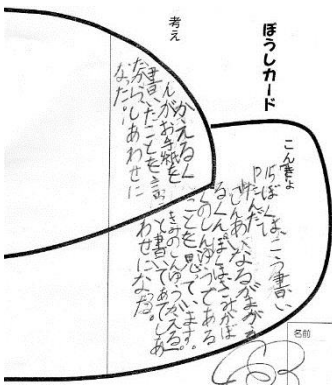 ぼうしカード
こんきょ
P15ぼくは、こう書い
たんだ。
しんあいなるがまがえ
るくん。ぼくはきみがぼ
くのしんゆうである
ことを思っています。
きみのしんゆうかえる。
と書いてあてしあ
わせになった。
名前
考え
かえるく
んがお手紙を
書いたことを言っ
たからしあわせに
なった。